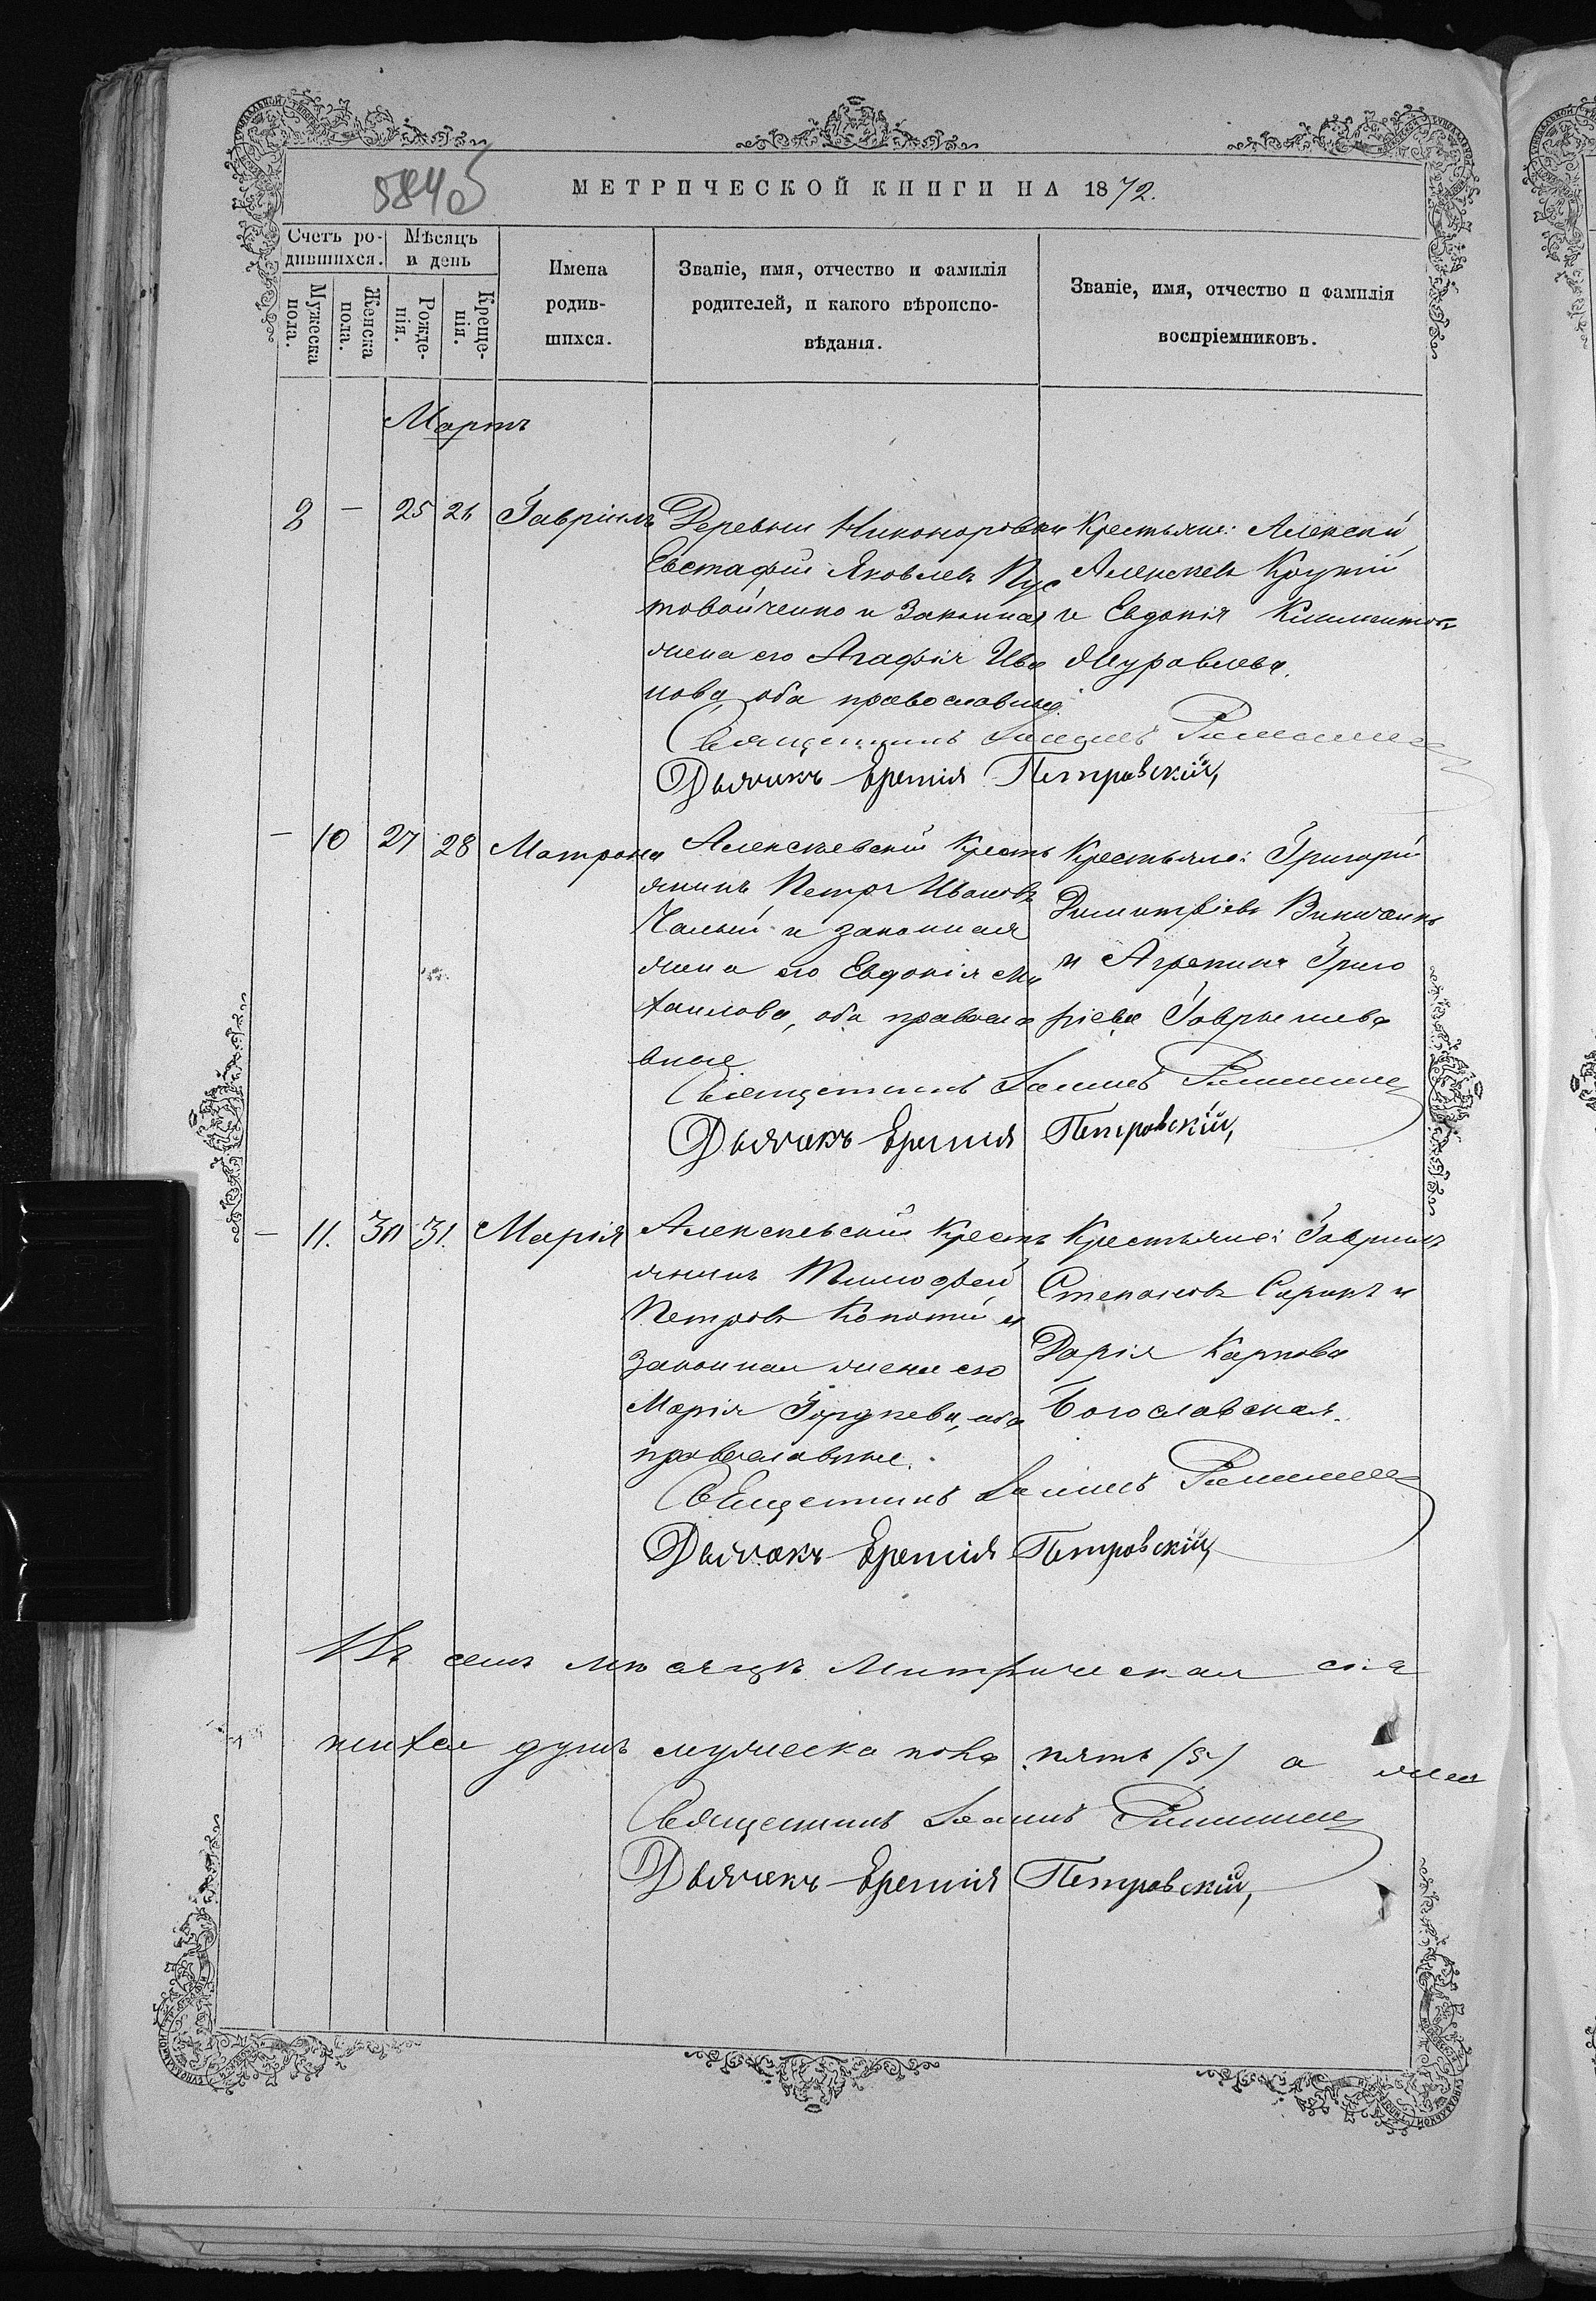 584об
МЕТРИЧЕСКОЙ КНИГИ НА 1872.
Счетъ родившихся.
Мужеска пола.
Женска пола.
Мѣсяцъ и день
Рожденія.
Крещенія.
Имена родившихся.
Званіе, имя, отчество и фамилія родителей, и какого вѣроисповѣданія.
Званіе, имя, отчество и фамилія воспріемниковъ.
Мартъ
8 — 25 26 Гавріилъ
Деревни Никоноровки
Евстафій Яковлевъ Пус
товойченко и Законная
жена его Агафія Ива
нова, оба православные.
Крестьяне: Алексѣй
Алексѣевъ Крутій
и Евдокія Климентова
Муравлева.
Священникъ Іоаннъ
Дьячекъ Еремія Петровскій,
— 10 27 28 Матрона
Алексѣевскій Кресть
янинъ Петръ Ивановъ
Чалый и законная
жена его Евдокія Ми
хаилова, оба правосла
вные
Крестьяне: Григорій
Димитріевъ
и Агрепина Григо
ріева
Священникъ Іоаннъ
Дьячекъ Еремія Петровскій,
— 11. 30 31. Марія
Алексѣевскій Кресть
янинъ Тимофей
Петровъ Копотій и
законная жена его
Марія Гордѣева, оба
православные.
Крестьяне: Гавріилъ
Степановъ Сиринъ и
Дарія Карпова
Богославская.
Священникъ Іоаннъ
Дьячекъ Еремія Петровскій,
Въ семъ мѣсяцѣ Митрическая сія
книха душъ мужеска пола пять (5) а жен
Священникъ Іоаннъ
Дьячекъ Еремія Петровскій,